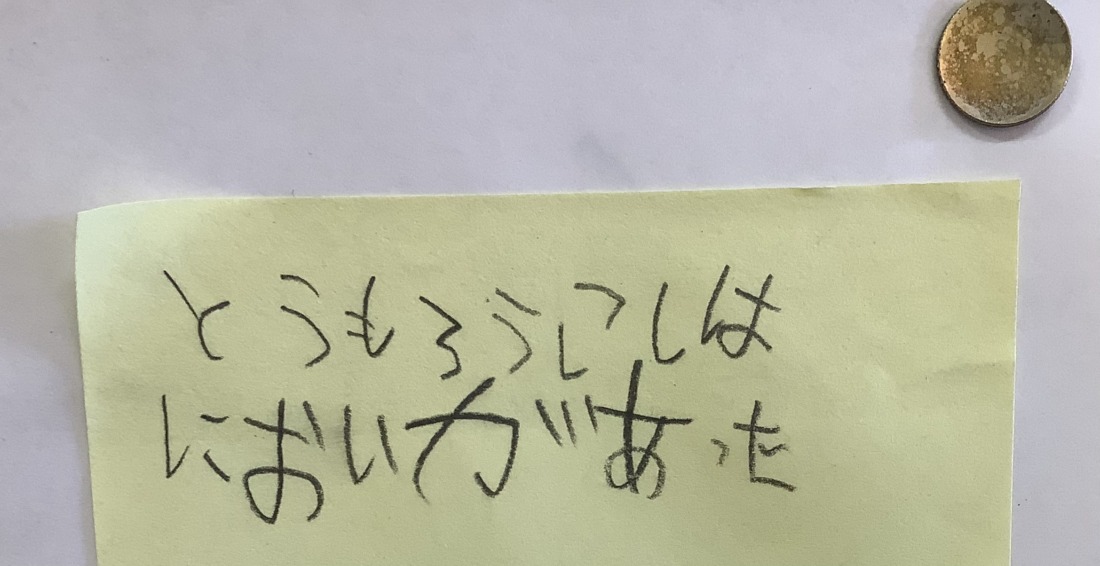 とうもろうこしは
においがあった